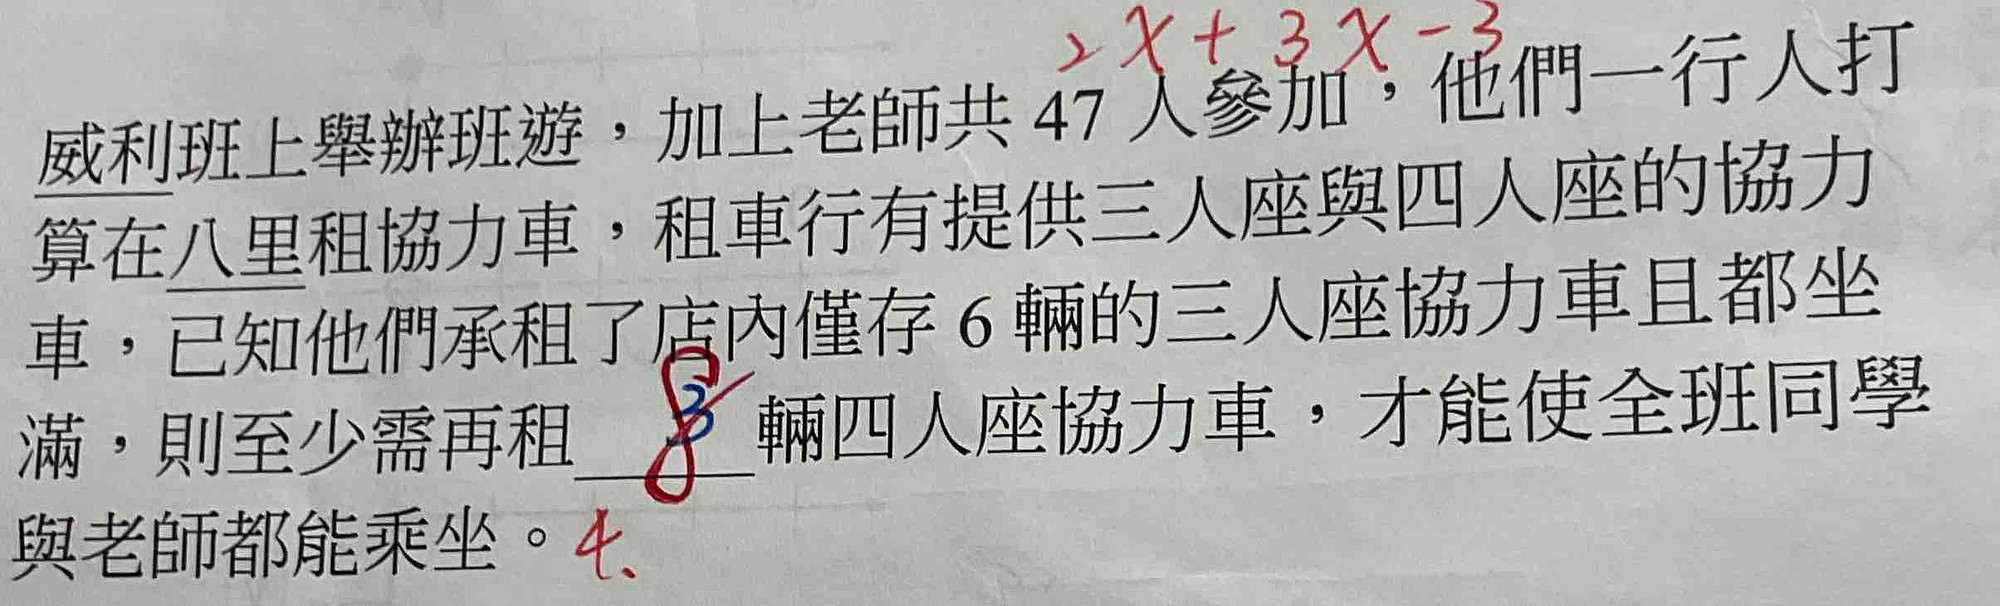 2x+3x-3
威利班上舉辦班遊，加上老師共 47 人參加，他們一行人打
算在八里租協力車，租車行有提供三人座與四人座的協力
車，已知他們承租了店內僅存 6 輛的三人座協力車且都坐
滿，則至少需再租 8 輛四人座協力車，才能使全班同學
與老師都能乘坐。4.